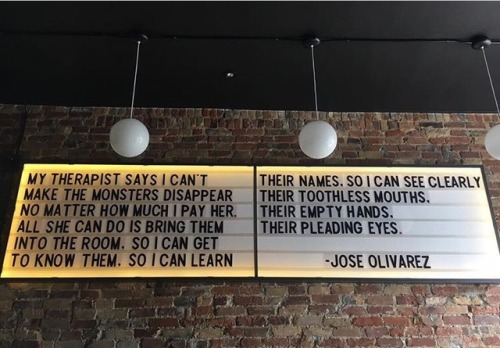 MY THERAPIST SAYS I CAN'T
MAKE THE MONSTERS DISAPPEAR
NO MATTER HOW MUCH I PAY HER.
ALL SHE CAN DO IS BRING THEM
INTO THE ROOM. SO I CAN GET
TO KNOW THEM. SO I CAN LEARN
THEIR NAMES. SO I CAN SEE CLEARLY
THEIR TOOTHLESS MOUTHS.
THEIR EMPTY HANDS.
THEIR PLEADING EYES.
-JOSE OLIVAREZ